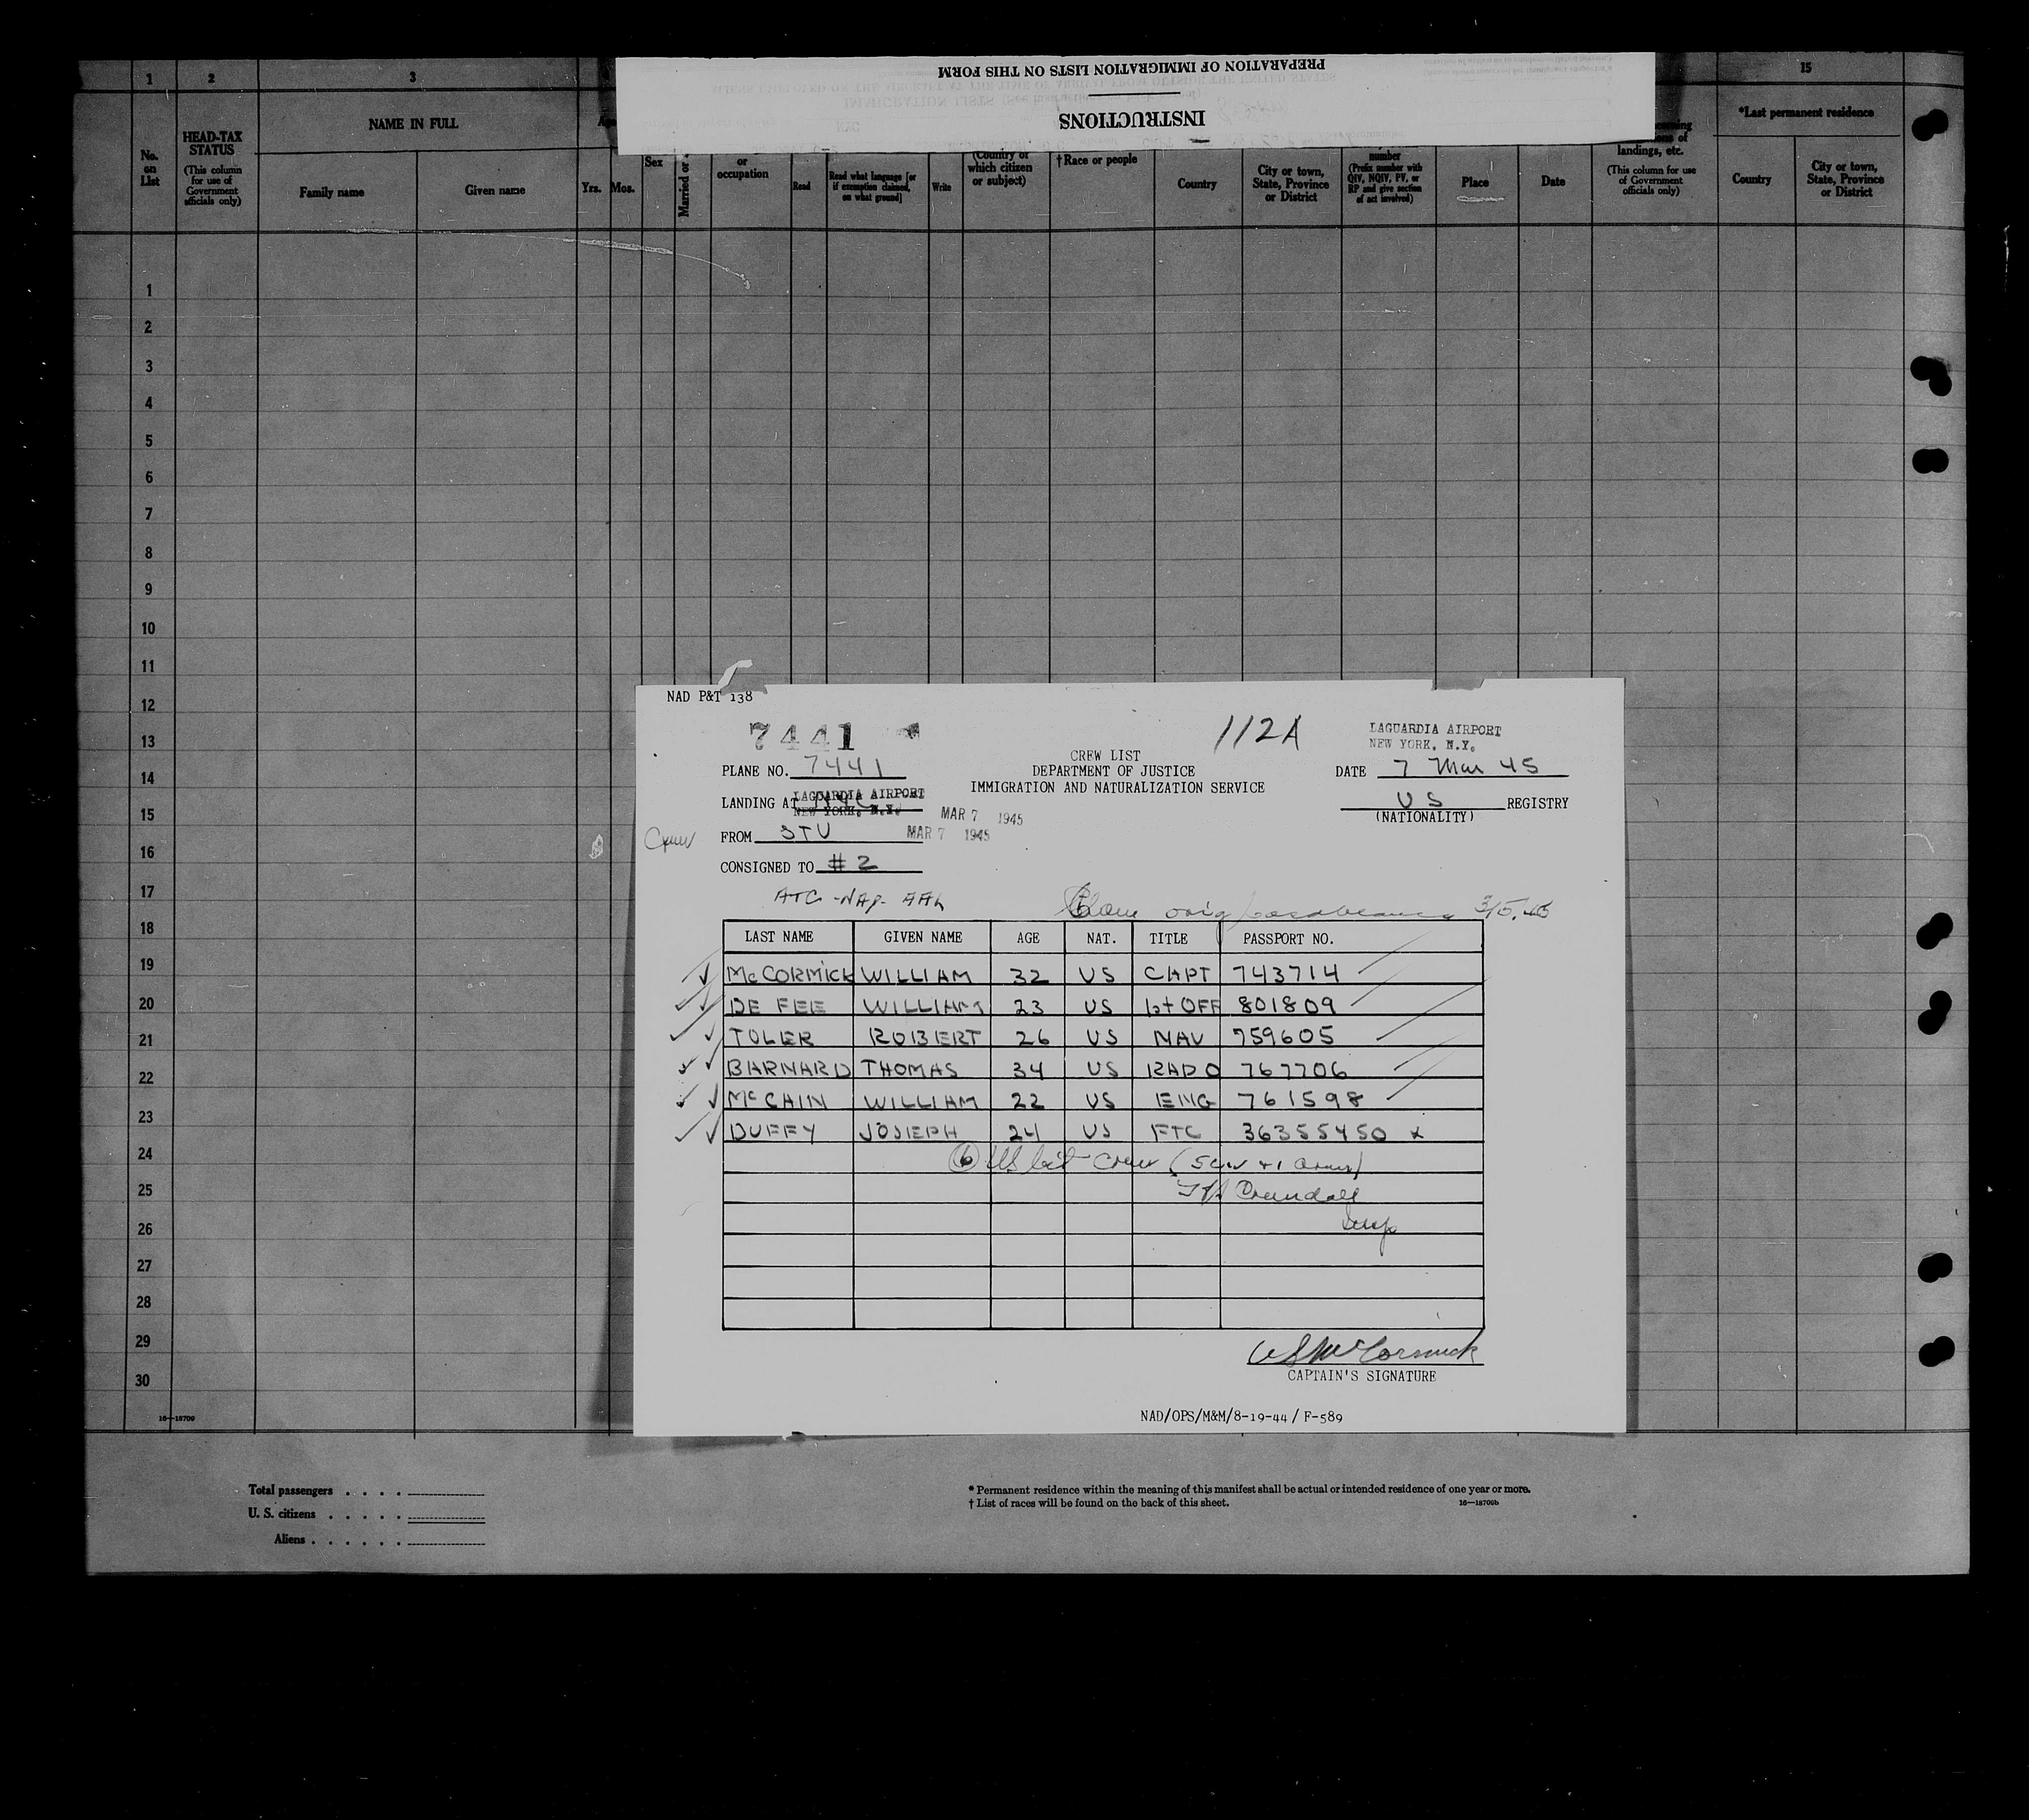 PREPARATION OF IMMIGRATION LISTS ON THIS FORM
INSTRUCTIONS
1 2 3 15
No. on List
HEAD-TAX STATUS
(This column for use of Government officials only)
NAME IN FULL
Family name Given name
Yrs. Mos.
Sex
Married or
or occupation
Read
Read what language [or if exemption claimed, on what ground]
Write
(Country of which citizen or subject)
†Race or people
Country
City or town, State, Province or District
number
(Prefix number with QIV, NQIV, PV, or RP and give section of act involved)
Place Date
landings, etc.
(This column for use of Government officials only)
*Last permanent residence
Country
City or town, State, Province or District
1
2
3
4
5
6
7
8
9
10
11
12
13
14
15
16
17
18
19
20
21
22
23
24
25
26
27
28
29
30
16—18709
NAD P&T 138
7441
112A
LAGUARDIA AIRPORT
NEW YORK, N.Y.
CREW LIST
DEPARTMENT OF JUSTICE
IMMIGRATION AND NATURALIZATION SERVICE
PLANE NO. 7441
DATE 7 Mar 45
LANDING AT NYC
LAGUARDIA AIRPORT
NEW YORK, N.Y.
MAR 7 1945
US REGISTRY
(NATIONALITY)
Crew
FROM STU
MAR 7 1945
CONSIGNED TO #2
orig Casablanca 3/5/45
LAST NAME GIVEN NAME AGE NAT. TITLE PASSPORT NO.
McCORMICK WILLIAM 32 US CAPT 743714
DE FEE WILLIAM 23 US 1st OFF 801809
TOLER ROBERT 26 US NAV 759605
BARNARD THOMAS 34 US RADO 767706
McCAIN WILLIAM 22 US ENG 761598
DUFFY JOSEPH 24 US FTC 36355450 x
6 US cit crew (5 civ +1 army)
Crandall
Insp
WSMcCormick
CAPTAIN'S SIGNATURE
NAD/OPS/M&M/8-19-44 / F-589
Total passengers
U. S. citizens
Aliens
* Permanent residence within the meaning of this manifest shall be actual or intended residence of one year or more.
† List of races will be found on the back of this sheet.
16—18709b